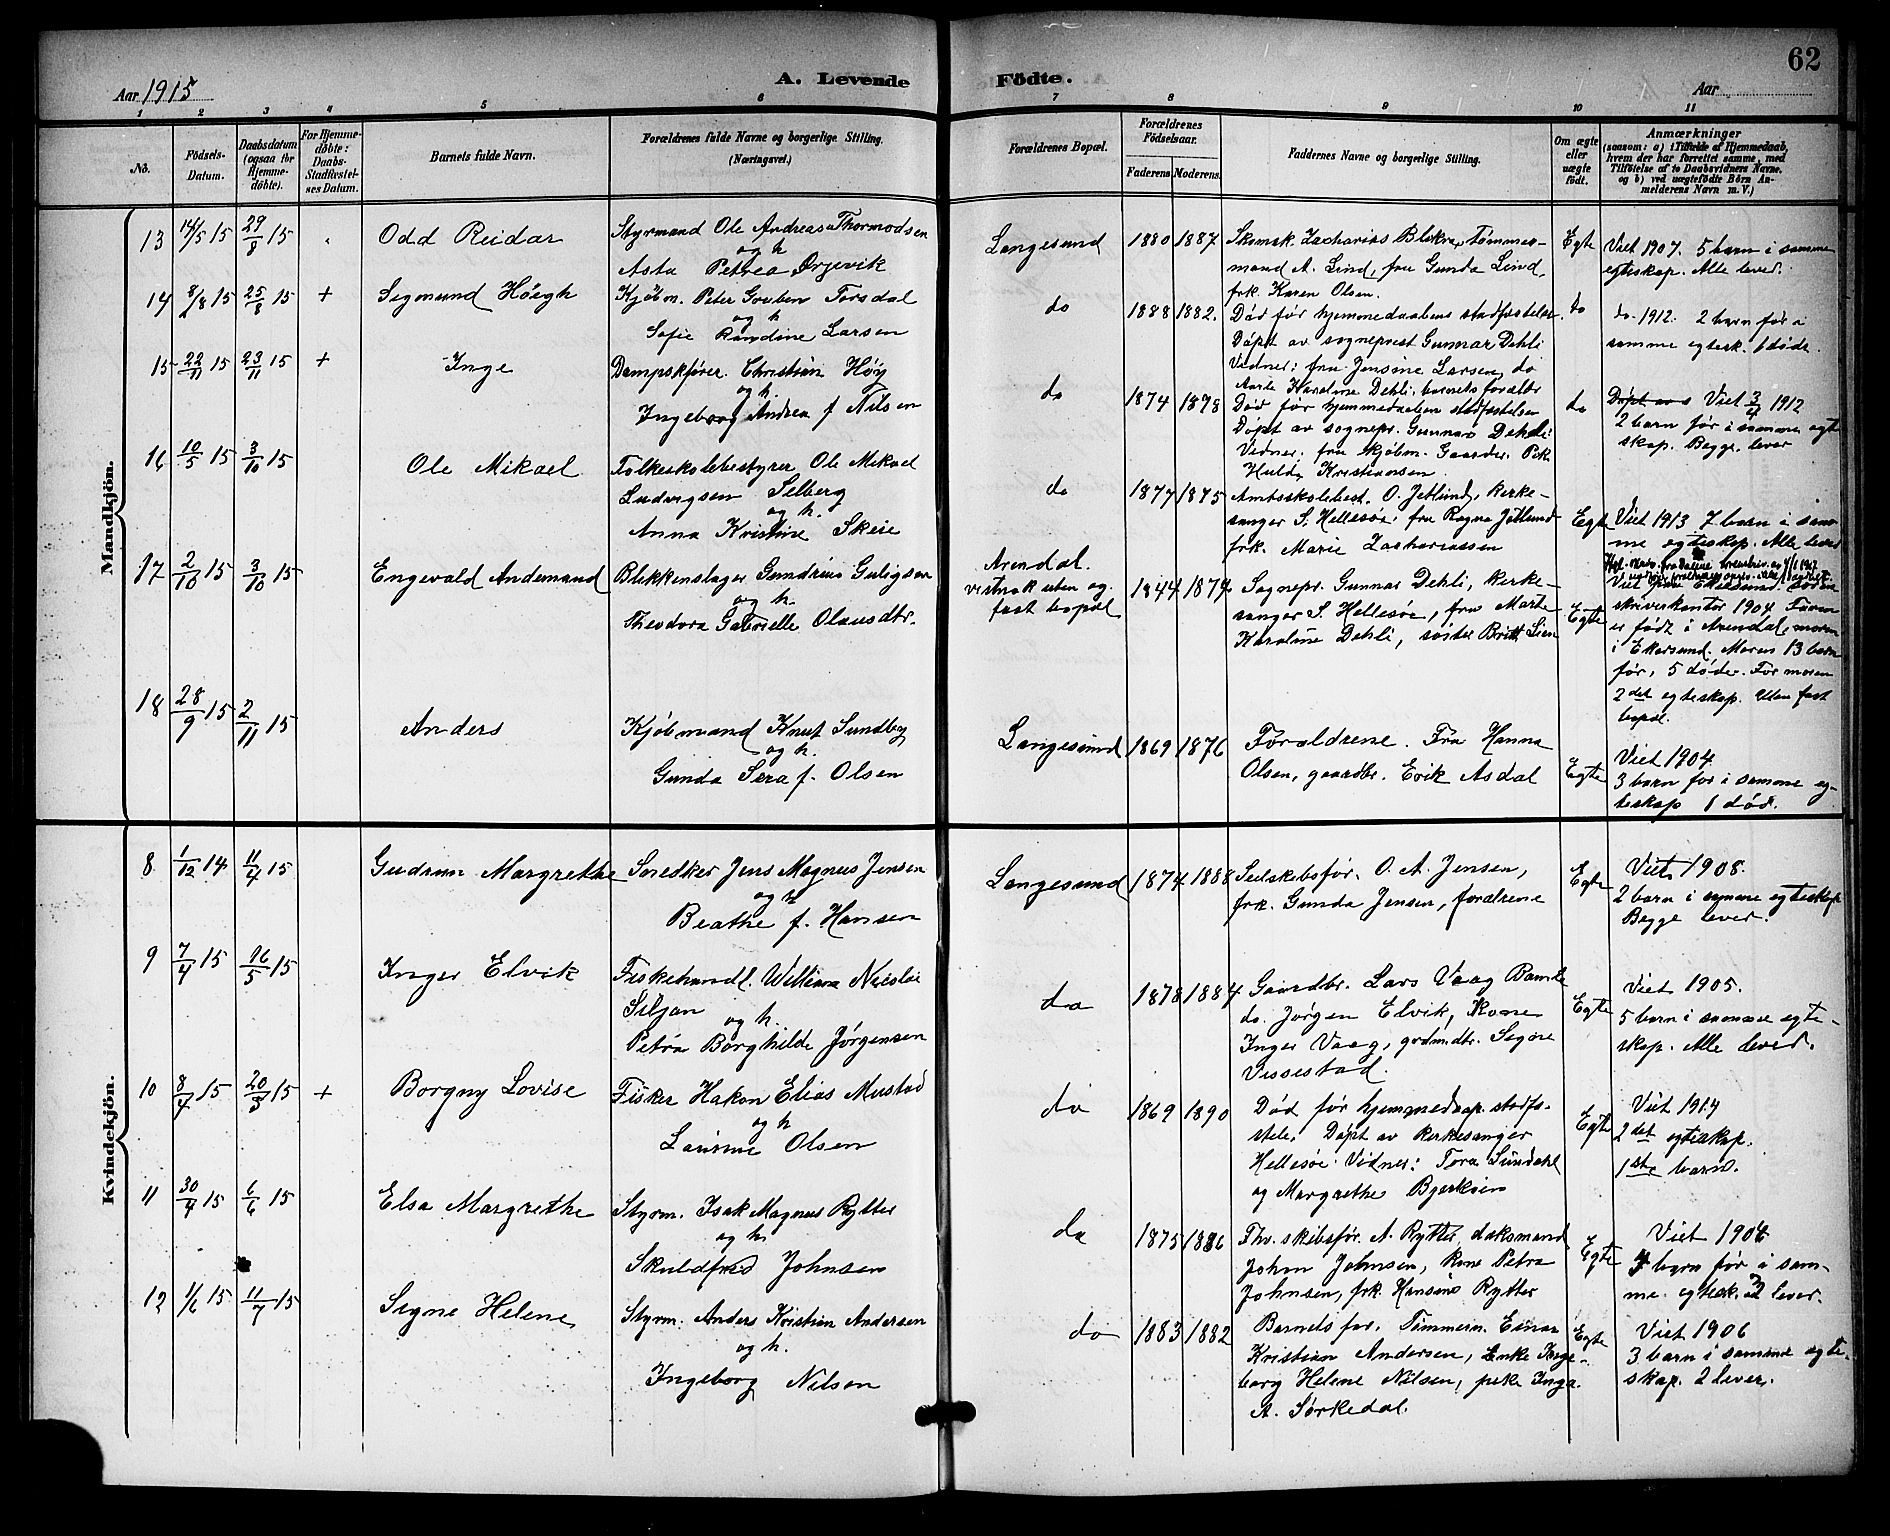 62
Aar 1915
A. Levende
Födte.
Aar
1 2 3 4 5 6 7 8 9 10 11
No.
Födsels-Datum.
Daabsdatum (ogsaa for Hjemme-döbte).
For Hjemme-döbte: Daabs-Stadfæstel-ses Datum.
Barnets fulde Navn.
Forældrenes fulde Navne og borgerlige Stilling. (Næringsvei.)
Forældrenes Bopæl.
Forældrenes Födselsaar.
Faderens Moderens.
Faddernes Navne og borgerlige Stilling.
Om ægte eller uægte födt.
Anmærkninger
(saasom: a) i Tilfælde af Hjemmedaab,
hvem der har forrettet samme, med
Tilföielse af to Daabsvidners Navne,
og b) ved uægtefödte Börn An-
melderens Navn m. V.)
Mandkjön.
13 14/5 15 29/8 15
Odd Reidar
Styrmand Ole Andreas Thormodsen
og h
Asta Petrea Ørjevik
Langesund 1880 1887
Skomak. Zacharias Blekra, Tømmer-
mand A. Lind, fru Gunda Lind,
frk. Karen Olsen.
Egte
Viet 1907. 5 barn i samme
egteskap. Alle lever.
14 8/8 15 25/8 15 +
Sigmund Høegh
Kjøbm. Peter Gruben Torsdal
og h
Sofie Randine Larsen
do 1888 1882.
Død før hjemmedaabens stadfæstelse.
Døpt av sogneprest Gunnar Dehli
Vidner: fru Jensine Larsen, do
Marte Karoline Dehli, barnets forældr
do
do 1912. 2 barn før i
samme egtesk. 1 døde.
15 22/11 15 23/11 15 +
Inge
Dampskfører. Christian Høy
og h.
Ingeborg Andrea f. Nilsen
do 1874 1878
Død før hjemmedaaben stadfæstelse
Døpt av sognepr. Gunnar Dehli
Vidner: fru skjøbm. Gaarder, Pik
Hulda Kristiansen
do
Døpt av s Viet 3/4 1912
2 barn før i samme egte
skap. Begge lever
16 10/5 15 3/10 15
Ole Mikael
Folkeskolebestyrer Ole Mikael
Ludvigsen Selberg
og h.
Anna Kristine Skeie
do 1877 1875
Amtsskolebest. O. Jetlund, kirke-
sanger S. Hellesøe, fru Ragna Jetlund
frk. Marie Zachariassen
Egte
Viet 1913 7 barn i sam-
me egteskap. Alle lever
17 2/10 15 3/10 15
Engevald Andemand
Blikkenslager Gundrius Guligsen
og h.
Theodora Gabrielle Olausdtr.
Arendal.
vistnok uten og
fast bopæl
1844 1874
Sognepr. Gunnar Dehli, kirke-
sanger S. Hellesøe, fru Marte
Karoline Dehli, søster Britt Lien
Egte
skriverkontor 1904. Faren
er født i Arendal, moren
i Ekersund. Moren 13 barn
før, 5 døde. For moren
2 det egteskap. Uten fast
bopæl.
18 28/9 15 2/11 15
Anders
Kjøbmand Knut Sundby
og h.
Gunda Sera f. Olsen
Langesund 1869 1876
Forældrene. Fra Hanna
Olsen, gaardbr. Erik Asdal
Egte
Viet 1904
3 barn før i samme eg-
teskap 1 død.
Kvindekjön.
8 1/12 14 11/4 15
Gudrun Margrethe
Snedker Jens Magnus Jensen
og h
Beathe f. Hansen
Langesund 1874 1888
Seilskibsfør. O. A. Jensen,
frk. Gunda Jensen, forældrene
Egte
Viet 1908.
2 barn i samme egteskap
Begge lever.
9 7/4 15 16/5 15
Inger Elvik
Fiskehandl. William
Siljan og h.
Petra Borghilde Jørgensen
do 1878 1884
Gaardbr. Lars Vaag Bamle
do. Jørgen Elvik, Kone
Inger Vaag, grdmdtr. Signe
Vissestad.
Egte
Viet 1905.
5 barn i samme egte-
skap. Alle lever.
10 8/4 15 20/3 15 +
Borgny Lovise
Fisker Hakon Elias Mustad
og h
Laurine Olsen
do 1869 1890
Død før hjemmedaap. stadfæ-
stelse. Døpt av kirkesanger
Hellesøe. Vidner: Tora Sundahl
og Margrethe Bjerksen
Egte
Viet 1914
2 det egteskap.
1 ste barn.
11 30/4 15 6/6 15
Elsa Margrethe
Styrm. Isak Magnus Rytter
og h.
Skuldfred Johnsen
do 1875 1886
Fhv. skibsfør. A. Rytter, daksmand,
Johan Johnsen, kone Petra
Johnsen, frk. Hansine Rytter
Egte
Viet 1904
barn før i sam-
me egtesk. lever.
12 1/6 15 11/7 15
Signe Helene
Styrm. Anders Kristian Andersen
og h.
Ingeborg Nilsen
do 1883 1882
Barnets far. Tømmerm. Einar
Kristian Andersen, Enke Inge-
borg Helene Nilsen, pike Inga
A. Sørkedal.
Egte
Viet 1906
3 barn i samme egte-
skap. 2 lever.